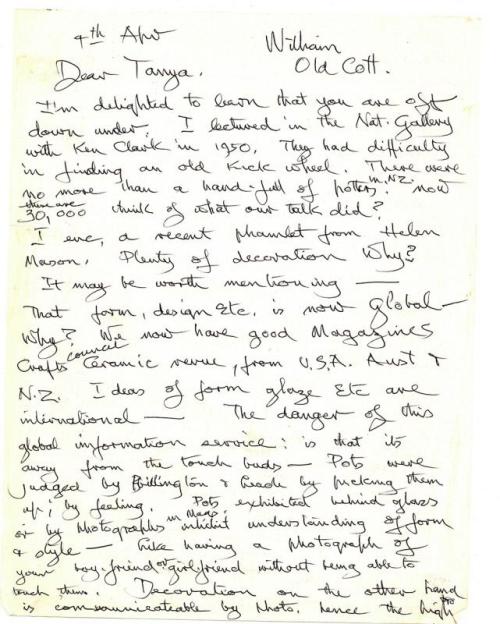 4th Apr William
Old Cott.
Dear Tanya.
I'm delighted to learn that you are off
down under. I lectured in the Nat. Gallery
with Ken Clark in 1950. They had difficulty
in finding an old Kick wheel. There were
no more than a hand-full of potters in N.Z. now
there are
30,000 think of what our talk did?
I enc, a recent phamlet from Helen
Mason. Plenty of decoration Why?
It may be worth mentioning —
That form, design Etc. is now global —
Why? We now have good Magazines
Crafts council Ceramic revue, from U.S.A. Aust &
N.Z. Ideas of form glaze Etc are
international — The danger of this
global information service: is that its
away from the touch buds — Pots were
judged by Billington & Leach by picking them
up; by feeling. Pots exhibited behind glass
or by photographs in Mags; inhibit understanding of form
& style — like having a photograph of
your boy-friend or girl-friend without being able to
touch them. Decoration on the other hand
is communicateable by photo. hence the high